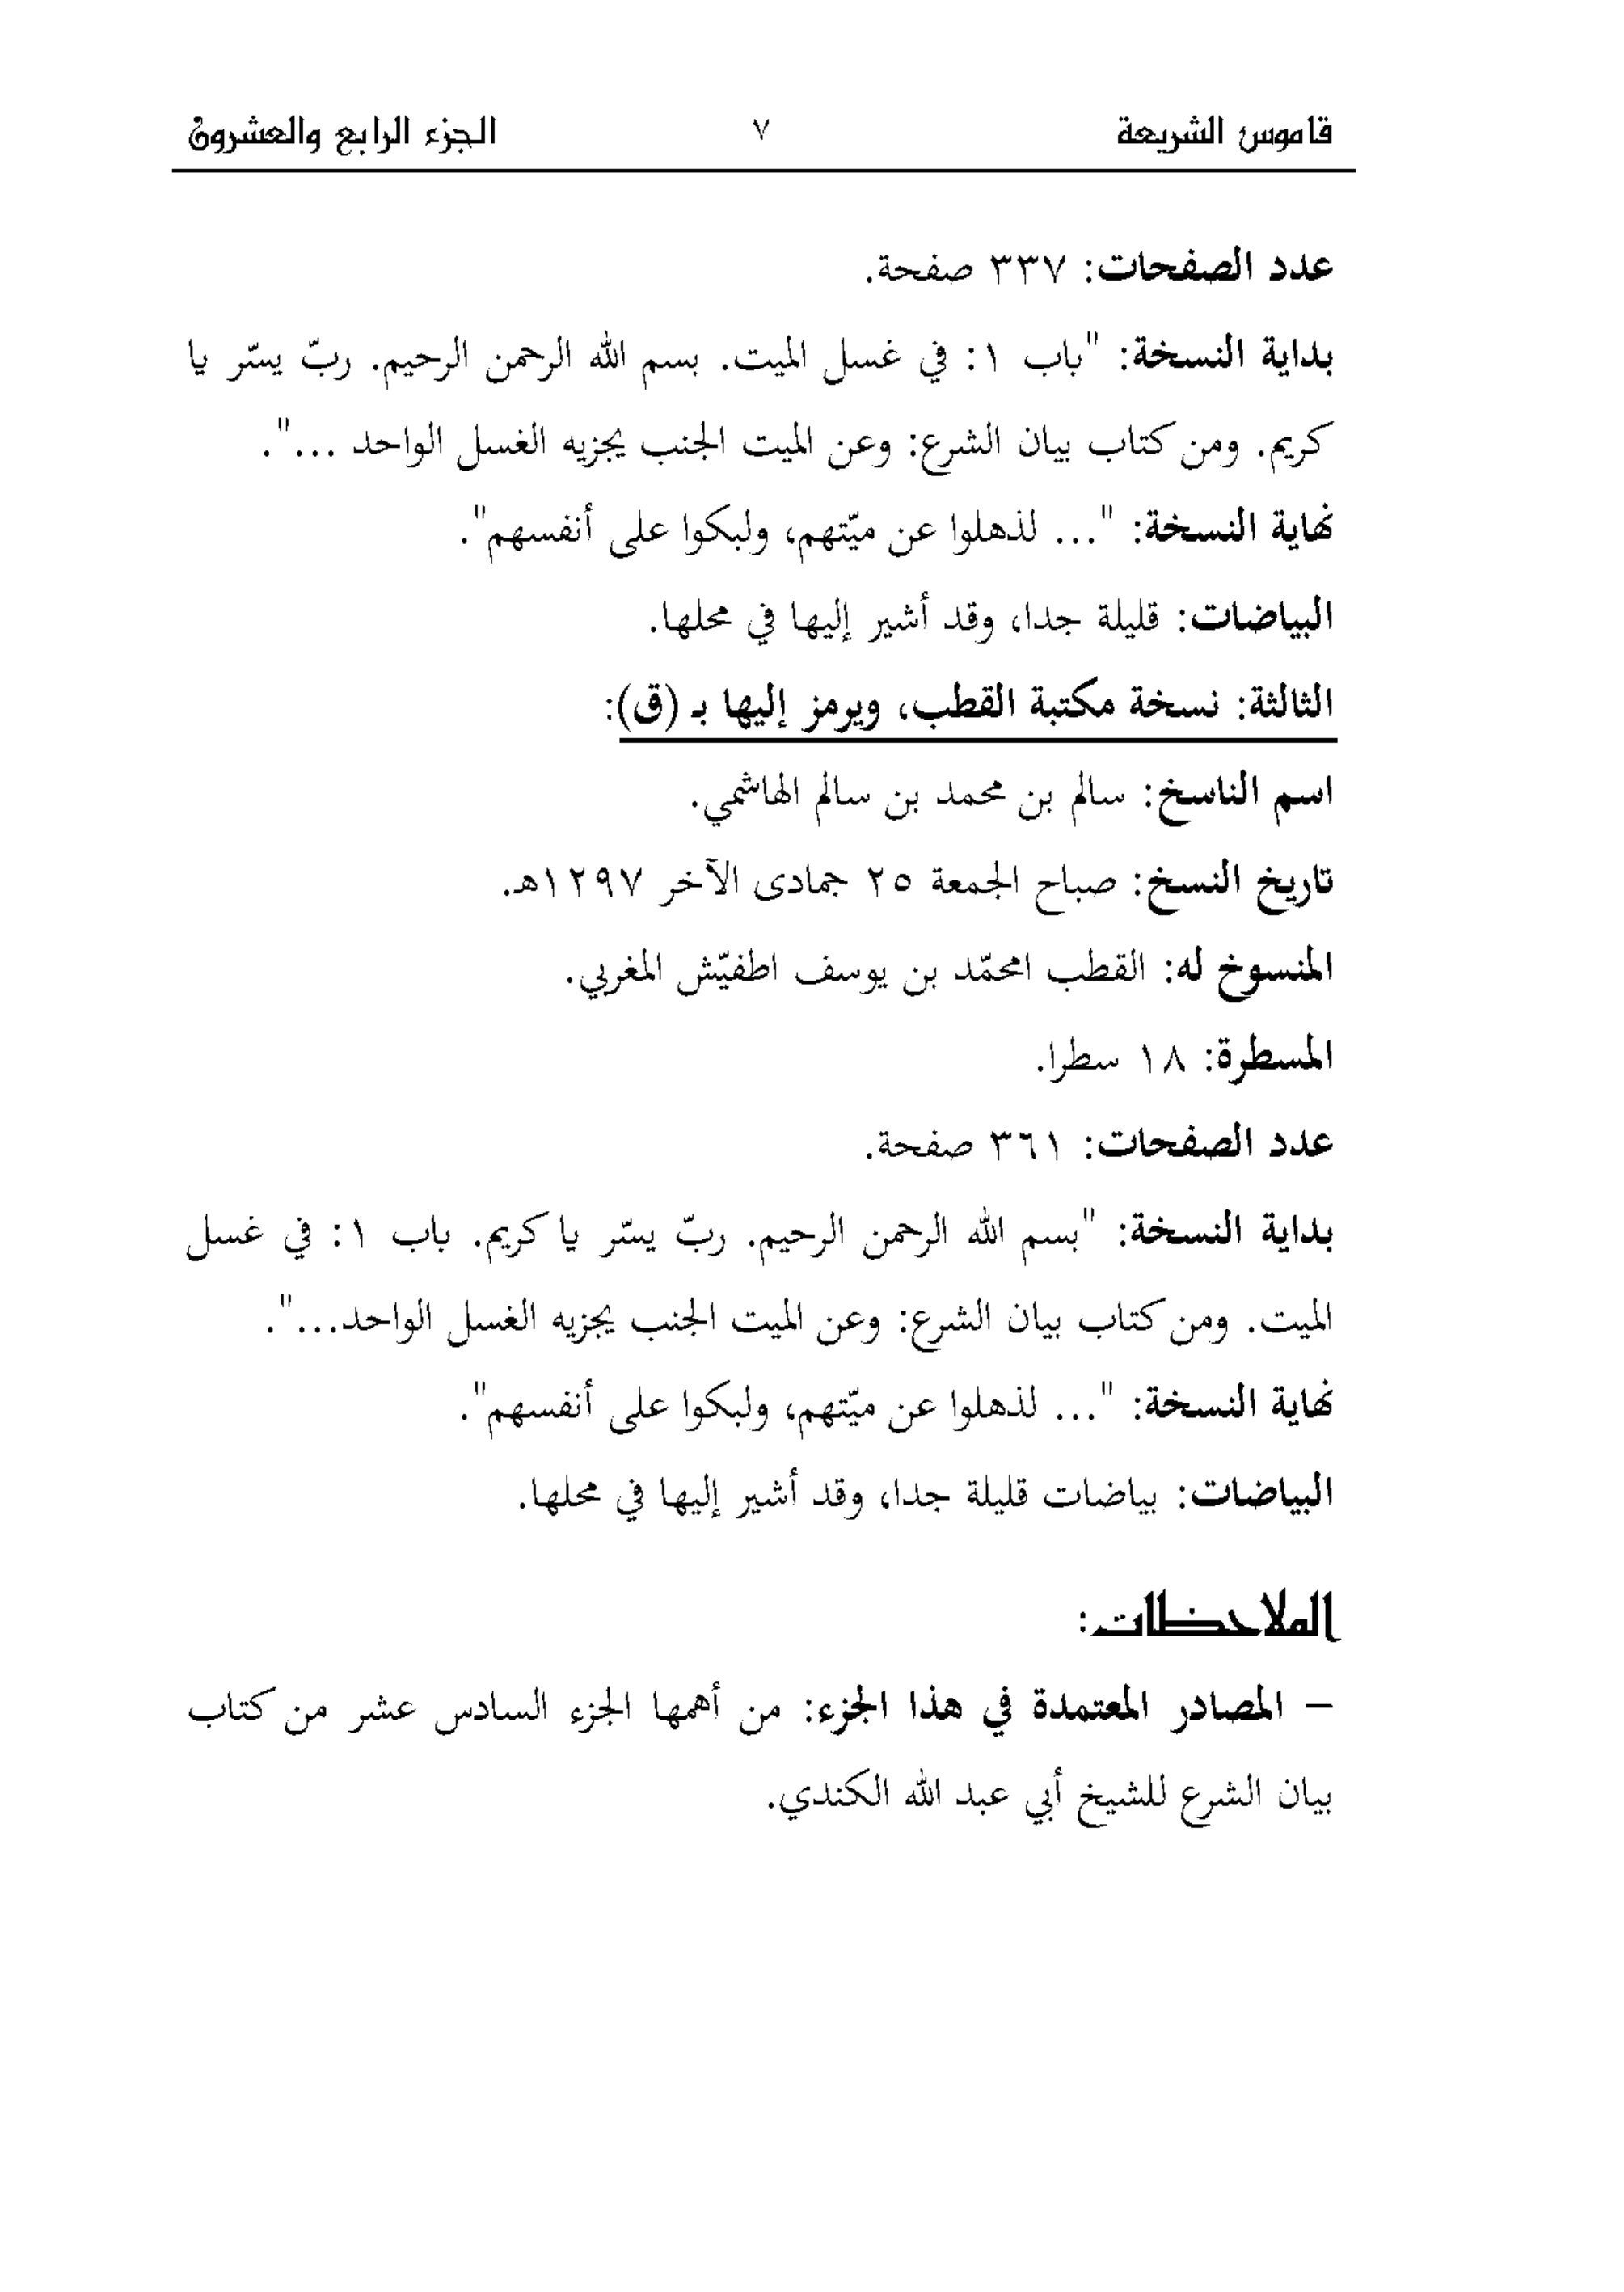 قاموس الشريعة ٧ الجزء الرابع والعشرون
عدد الصفحات: ٣٣٧ صفحة.
بداية النسخة: "باب ١: في غسل الميت. بسم الله الرحمن الرحيم. ربّ يسّر يا
كريم. ومن كتاب بيان الشرع: وعن الميت الجنب يجزيه الغسل الواحد ...".
نهاية النسخة: "... لذهلوا عن ميّتهم، ولبكوا على أنفسهم".
البياضات: قليلة جدا، وقد أشير إليها في محلها.
الثالثة: نسخة مكتبة القطب، ويرمز إليها بـ (ق):
اسم الناسخ: سالم بن محمد بن سالم الهاشمي.
تاريخ النسخ: صباح الجمعة ٢٥ جمادى الآخر ١٢٩٧هـ.
المنسوخ له: القطب امحمّد بن يوسف اطفيّش المغربي.
المسطرة: ١٨ سطرا.
عدد الصفحات: ٣٦١ صفحة.
بداية النسخة: "بسم الله الرحمن الرحيم. ربّ يسّر يا كريم. باب ١: في غسل
الميت. ومن كتاب بيان الشرع: وعن الميت الجنب يجزيه الغسل الواحد...".
نهاية النسخة: "... لذهلوا عن ميّتهم، ولبكوا على أنفسهم".
البياضات: بياضات قليلة جدا، وقد أشير إليها في محلها.
الملاحظات:
– المصادر المعتمدة في هذا الجزء: من أهمها الجزء السادس عشر من كتاب
بيان الشرع للشيخ أبي عبد الله الكندي.